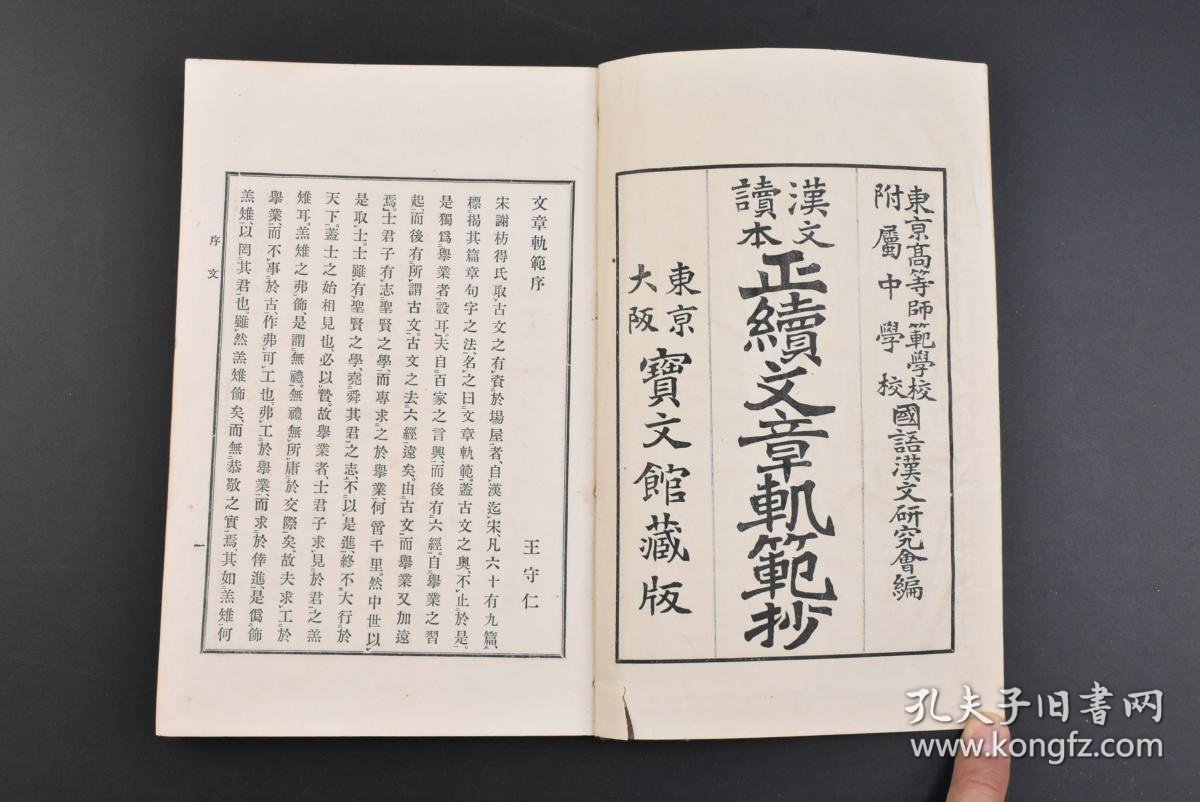 東京高等師範學校
附屬中學校
國語漢文研究會編
漢文
讀本
正續文章軌範抄
東京
大阪
寶文館藏版
文章軌範序
王守仁
宋謝枋得氏取古文之有資於場屋者、自漢迄宋、凡六十有九篇、
標揭其篇章句字之法、名之曰文章軌範。蓋古文之奧、不止於是。
是獨爲擧業者設耳。夫自百家之言興、而後有六經。自擧業之習
起、而後有所謂古文。古文之去六經遠矣。由古文而擧業又加遠
焉。士君子有志聖賢之學、而專求之於擧業、何啻千里。然中世以
是取士。士雖有聖賢之學、堯舜其君之志、不以是進、終不大行於
天下。蓋士之始相見也、必以贄。故擧業者、士君子求見於君之羔
雉耳。羔雉之弗飾、是謂無禮。無禮無所庸於交際矣。故夫求工於
擧業、而不事於古、作弗可工也。弗工於擧業、而求於倖進、是僞飾
羔雉、以罔其君也。雖然羔雉飾矣、而無恭敬之實焉、其如羔雉何
序文
一
孔夫子旧书网
www.kongfz.com